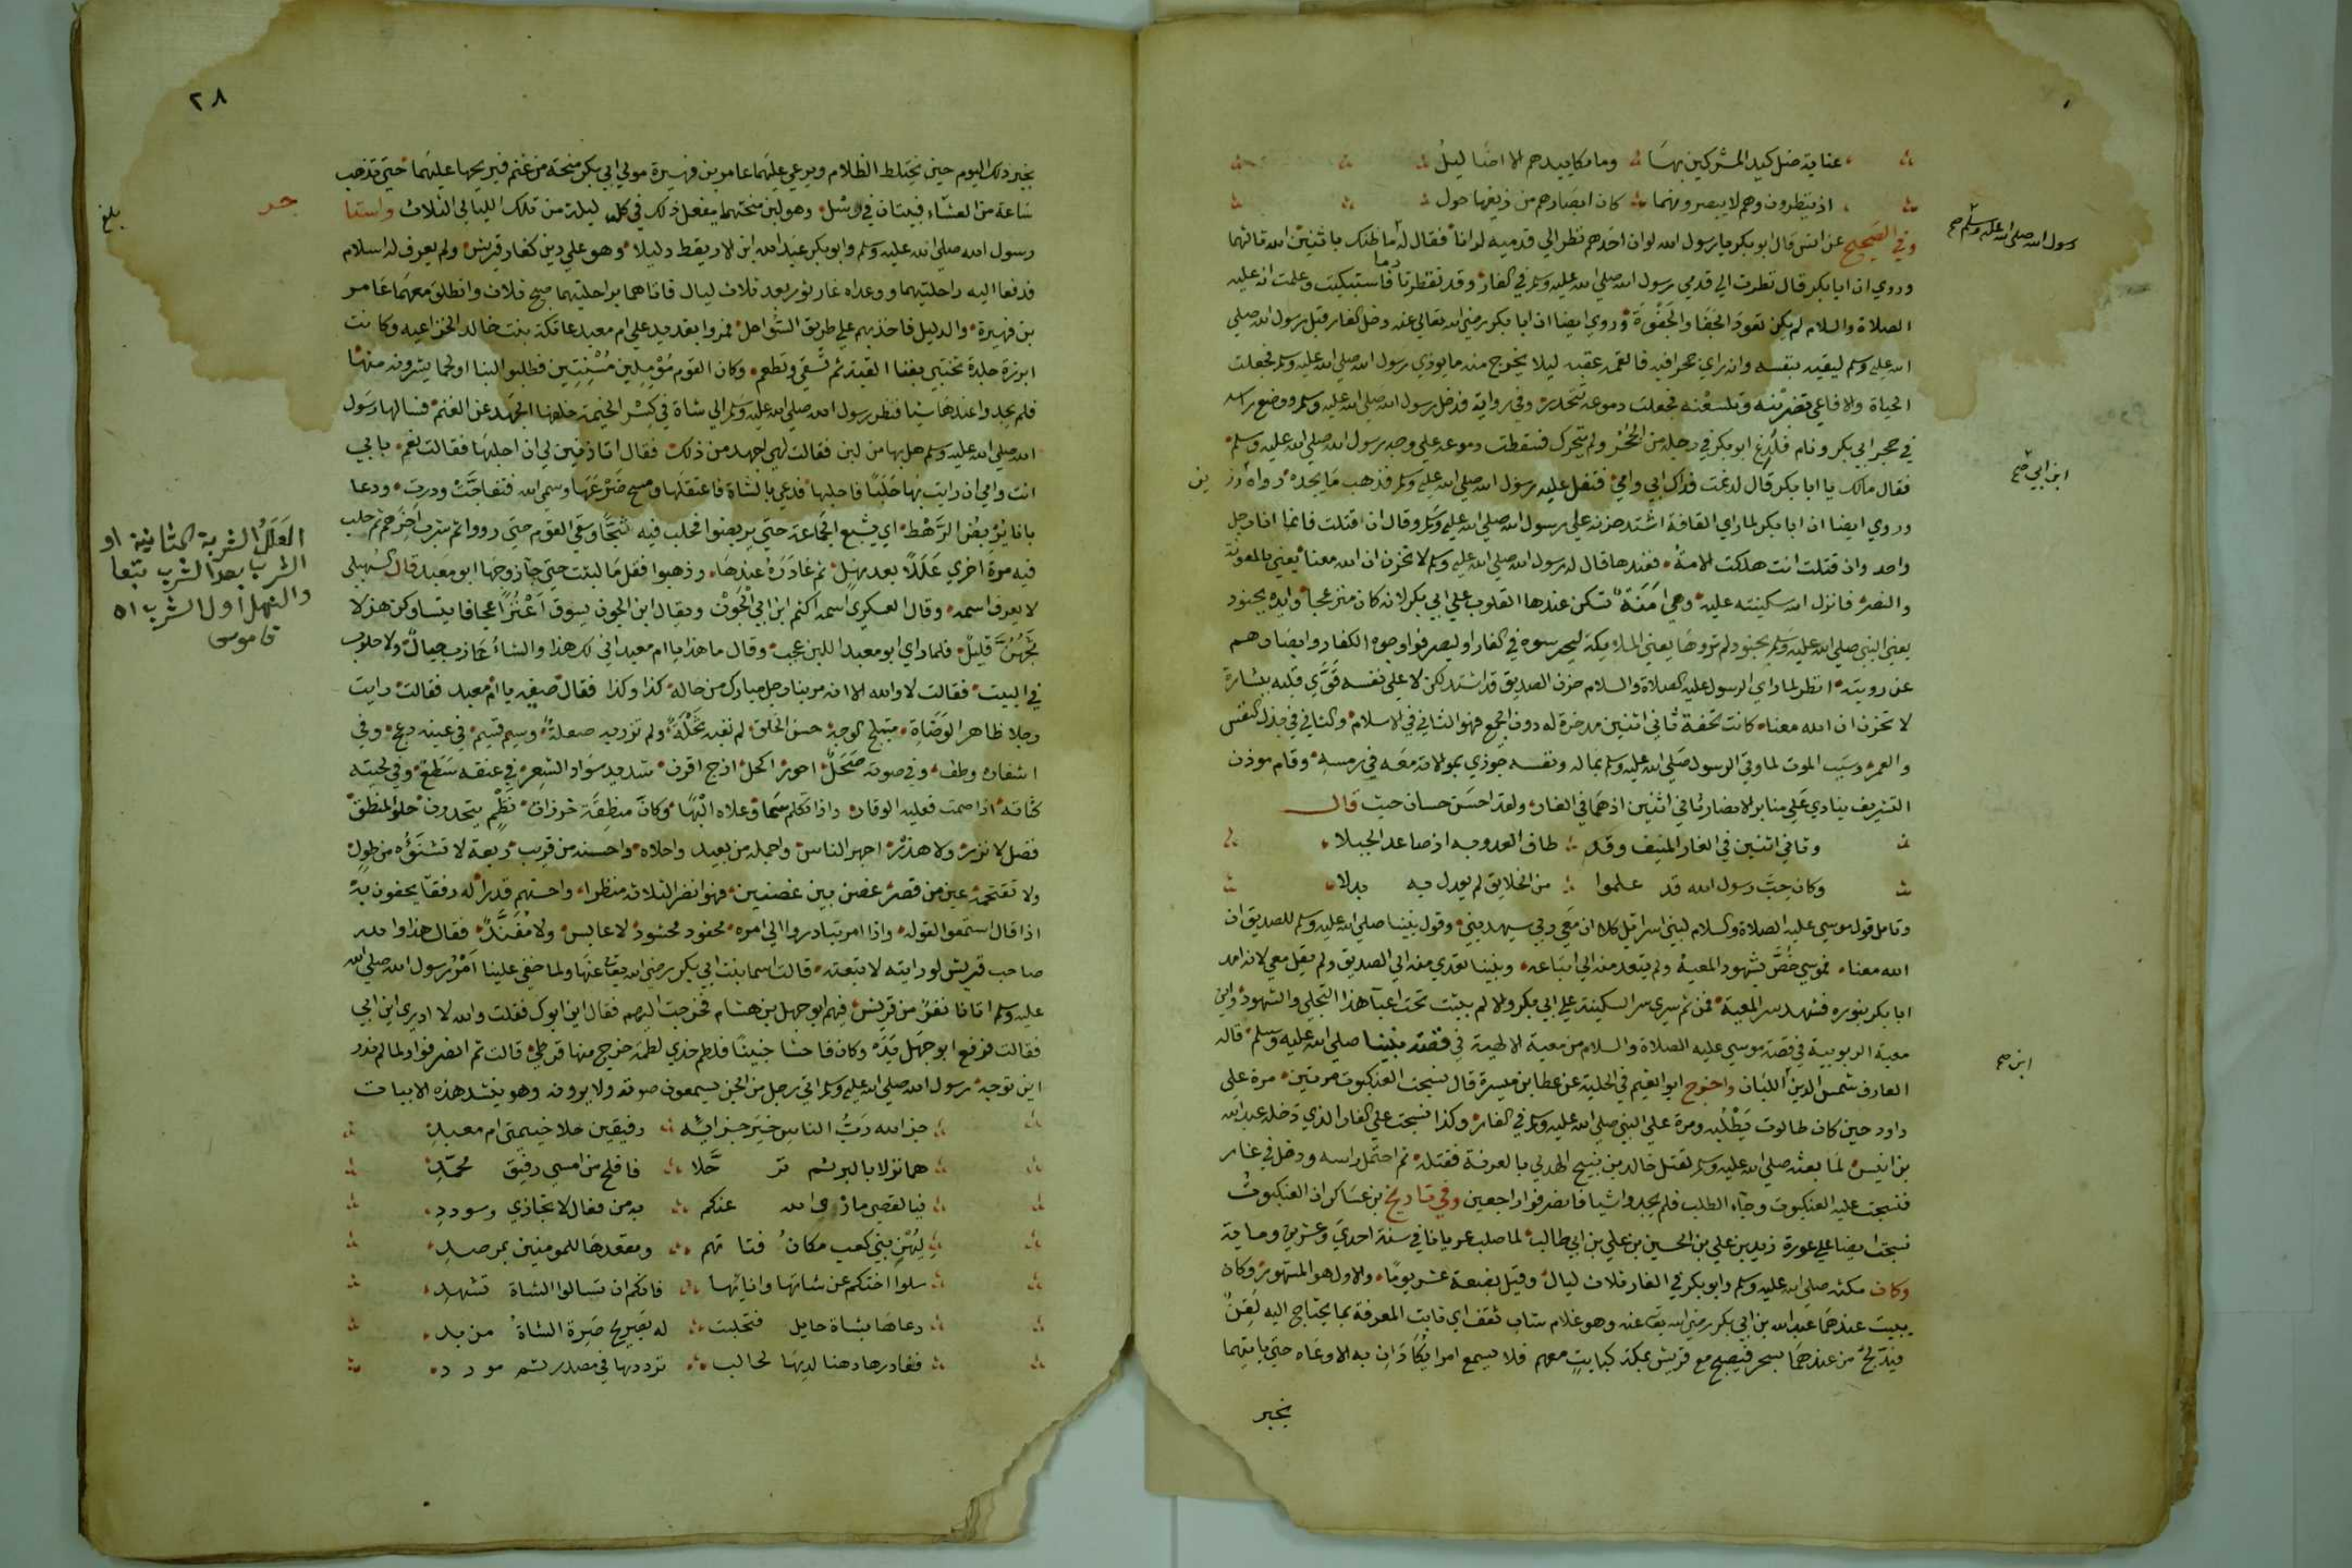 عناية ضل كيد المشركين بها وما مكاييدهم الا اضاليل
اذ ينظرون وهم لا يبصرونهما كان ابصارهم من زيغها حول
وفي الصحيح عن انس قال ابو بكر يا رسول الله لو ان احدهم نظر الي قدميه لرانا فقال له ما ظنك باثنين الله ثالثهما
رسول الله صلي الله عليه وسلم صح
وروي ان ابا بكر قال نظرت الي قدمي رسول الله صلي الله عليه وسلم في الغار وقد تقطرتا دما فاستبكيت وعلمت انه عليه
الصلاة والسلام لم يكن تعود الحفا والجفوة وروي ايضا ان ابا بكر رضي الله تعالي عنه دخل الغار قبل رسول الله صلي
الله عليه وسلم ليقيه بنفسه وانه راي جحرا فيه فالقمه عقبه ليلا يخرج منه ما يوذي رسول الله صلي الله عليه وسلم فجعلت
الحياة والافاعي تضربنه وتلسعنه فجعلت دموعه تتحدر وفي رواية فدخل رسول الله صلي الله عليه وسلم ووضع راسه
في حجر ابي بكر ونام فلدغ ابو بكر في رجله من الجحر ولم يتحرك فسقطت دموعه علي وجه رسول الله صلي الله عليه وسلم
فقال مالك يا ابا بكر قال لدغت فداك ابي وامي فتفل عليه رسول الله صلي الله عليه وسلم فذهب ما يجده رواه رزين
ابن ابي صح
وروي ايضا ان ابا بكر لما راي القافة اشتد حزنه علي رسول الله صلي الله عليه وسلم وقال ان اقتلت فانما انا رجل
واحد وان قتلت انت هلكت الامة فعندها قال له رسول الله صلي الله عليه وسلم لا تحزن ان الله معنا يعني بالمعونة
والنصر فانزل الله سكينته عليه وهي امنة تسكن عندها القلوب علي ابي بكر لانه كان منزعجا وايده بجنود
يعني النبي صلي الله عليه وسلم بجنود لم تروها يعني الملايكة ليحرسوه في الغار او ليصرفوا وجوه الكفار وابصارهم
عن رويته انظر لما راي الرسول عليه الصلاة والسلام حزن الصديق قد اشتد لكن لا علي نفسه قوي قلبه ببشارة
لا تحزن ان الله معنا كانت تحفة ثاني اثنين مدخرة له دون الجمع فهو الثاني في الاسلام والثاني في بذل النفس
والعمر وسبب الموت لما وقي الرسول صلي الله عليه وسلم بماله ونفسه جوزي بمواراته معه في رمسه وقام موذن
التشريف ينادي علي منابر الامصار ثاني اثنين اذهما في الغار ولقد احسن حسان حيث قال
وثاني اثنين في الغار المنيف وقد طاف العدو به اذ صاعد الجبلا
وكان حب رسول الله قد علموا من الخلايق لم يعدل به بدلا
وتامل قول موسي عليه الصلاة والسلام لبني اسرائيل كلا ان معي ربي سيهدين وقول نبينا صلي الله عليه وسلم للصديق ان
الله معنا فموسي خص بشهود المعية ولم يتعد منه الي اتباعه ونبينا تعدي منه الي الصديق ولم يقل معي لانه امد
ابا بكر بنوره فشهد سر المعية فمن ثم سري سر السكينة علي ابي بكر والا لم يثبت تحت اعباء هذا التجلي والشهود واين
معية الربوبية في قصة موسي عليه الصلاة والسلام من معية الالهية في قصة نبينا صلي الله عليه وسلم قاله
ابن صح
العارف شمس الدين اللبان واخرج ابو نعيم في الحلية عن عطا بن ميسرة قال نسجت العنكبوت مرتين مرة علي
داود حين كان طالوت يطلبه ومرة علي النبي صلي الله عليه وسلم في الغار وكذا نسجت علي الغار الذي دخله عبد الله
بن انيس لما بعثه صلي الله عليه وسلم لقتل خالد بن نبيح الهذلي بالعرنة فقتله ثم احتمل راسه ودخل في غار
فنسجت عليه العنكبوت وجاء الطلب فلم يجدوا شيا فانصرفوا راجعين وفي تاريخ بن عساكر ان العنكبوت
نسجت ايضا علي عورة زيد بن علي بن الحسين بن علي بن ابي طالب لما صلب عريانا في سنة احدي وعشرين وماية
وكان مكثه صلي الله عليه وسلم وابو بكر في الغار ثلاث ليال وقيل بضعة عشر يوما والاول هو المشهور وكان
يبيت عندهما عبد الله بن ابي بكر رضي الله تعا عنه وهو غلام شاب ثقف اي ثابت المعرفة بما يحتاج اليه لقن
فيدلج من عندهما بسحر فيصبح مع قريش بمكة كبايت معهم فلا يسمع امرا يكادان به الا وعاه حتي ياتيهما
بخبر
٢٨
بخبر ذلك اليوم حين يختلط الظلام ويرعي عليهما عامر بن فهيرة مولي ابي بكر منحة من غنم فيريحها عليهما حتي تذهب
ساعة من العشاء فيبيتان في رسل وهو لبن منحتهما يفعل ذلك في كل ليلة من تلك الليالي الثلاث واستا
جر
بلغ
رسول الله صلي الله عليه وسلم وابو بكر عبد الله ابن الاريقط دليلا وهو علي دين كفار قريش ولم يعرف له اسلام
فدفعا اليه راحلتيهما ووعداه غار ثور بعد ثلاث ليال فاتاهما براحلتيهما صبح ثلاث وانطلق معهما عامر
بن فهيرة والدليل فاخذ بهم علي طريق السواحل فمروا بقديد علي ام معبد عاتكة بنت خالد الخزاعيه وكانت
ابرزة جلدة تختبي بفنا القبة ثم تسقي وتطعم وكان القوم مرملين مسنتين فطلبوا لبنا او لحما يشترونه منها
فلم يجدوا عندها شيا فنظر رسول الله صلي الله عليه وسلم الي شاة في كسر الخيمة خلفها الجهد عن الغنم فسالها رسول
الله صلي الله عليه وسلم هل بها من لبن فقالت هي اجهد من ذلك فقال اتاذنين لي ان احلبها فقالت نعم بابي
انت وامي ان رايت بها حلبا فاحلبها فدعي بالشاة فاعتقلها ومسح ضرعها وسمي الله فتفاجت ودرت ودعا
باناء يربض الرهط اي يشبع الجماعة حتي يربضوا فحلب فيه ثجا وسقي القوم حتي رووا ثم شرب اخرهم ثم حلب
فيه مرة اخري عللا بعد نهل ثم غادره عندها وذهبوا فقل ما لبثت حتي جاء زوجها ابو معبد قال السهيلي
العلل الشربة الثانية او
الشرب بعد الشرب تبعا
والنهل اول الشرب اه
قاموس
لا يعرف اسمه وقال العسكري اسمه اكثم ابن ابي الجون ويقال ابن الجون يسوق اعنزا عجافا يتساوكن هزلا
مخهن قليل فلما راي ابو معبد اللبن عجب وقال ما هذا يا ام معبد اني لك هذا والشاء عازب حيال ولا حلوب
في البيت فقالت لا والله الا انه مر بنا رجل مبارك من حاله كذا وكذا فقال صفيه يا ام معبد فقالت رايت
رجلا ظاهر الوضاة متبلج الوجه حسن الخلق لم تعبه ثجلة ولم تزر به صعلة وسيم قسيم في عينه دعج وفي
اشفاره وطف وفي صوته صحل احور اكحل ازج اقرن شديد سواد الشعر في عنقه سطع وفي لحيته
كثاثة اذا صمت فعليه الوقار واذا تكلم سما وعلاه البها وكان منطقه خرزات نظم يتحدرن حلو المنطق
فصل لا نزر ولا هذر اجهر الناس واجمله من بعيد واحلاه واحسنه من قريب ربعة لا تشنؤه من طول
ولا تقتحمه عين من قصر غصن بين غصنين فهو انضر الثلاث منظرا واحسنهم قدرا له رفقاء يحفون به
اذا قال استمعوا لقوله واذا امر تبادروا الي امره محفود محشود لا عابس ولا مفند فقال هذا والله
صاحب قريش لو رايته لاتبعته قالت اسما بنت ابي بكر رضي الله تعا عنها ولما خفي علينا امر رسول الله صلي الله
عليه وسلم اتانا نفر من قريش فيهم ابو جهل بن هشام فخرجت اليهم فقال اين ابوك فقلت والله لا ادري اين ابي
فقالت فرفع ابو جهل يده وكان فاحشا خبيثا فلطم خدي لطمة خرج منها قرطي قالت ثم انصرفوا ولما لم ندر
اين توجه رسول الله صلي الله عليه وسلم اتي رجل من الجن يسمعون صوته ولا يرونه وهو ينشد هذه الابيات
جزا الله رب الناس خير جزائه رفيقين حلا خيمتي ام معبد
هما نزلا بالبر ثم ترحلا فافلح من امسي رفيق محمد
فيا لقصي ما زوي الله عنكم به من فعال لا تجازي وسودد
ليهن بني كعب مكان فتاتهم ومقعدها للمومنين بمرصد
سلوا اختكم عن شاتها وانائها فانكم ان تسالوا الشاة تشهد
دعاها بشاة حايل فتحلبت له بصريح ضرة الشاة مزبد
فغادرها رهنا لديها لحالب يرددها في مصدر ثم مورد